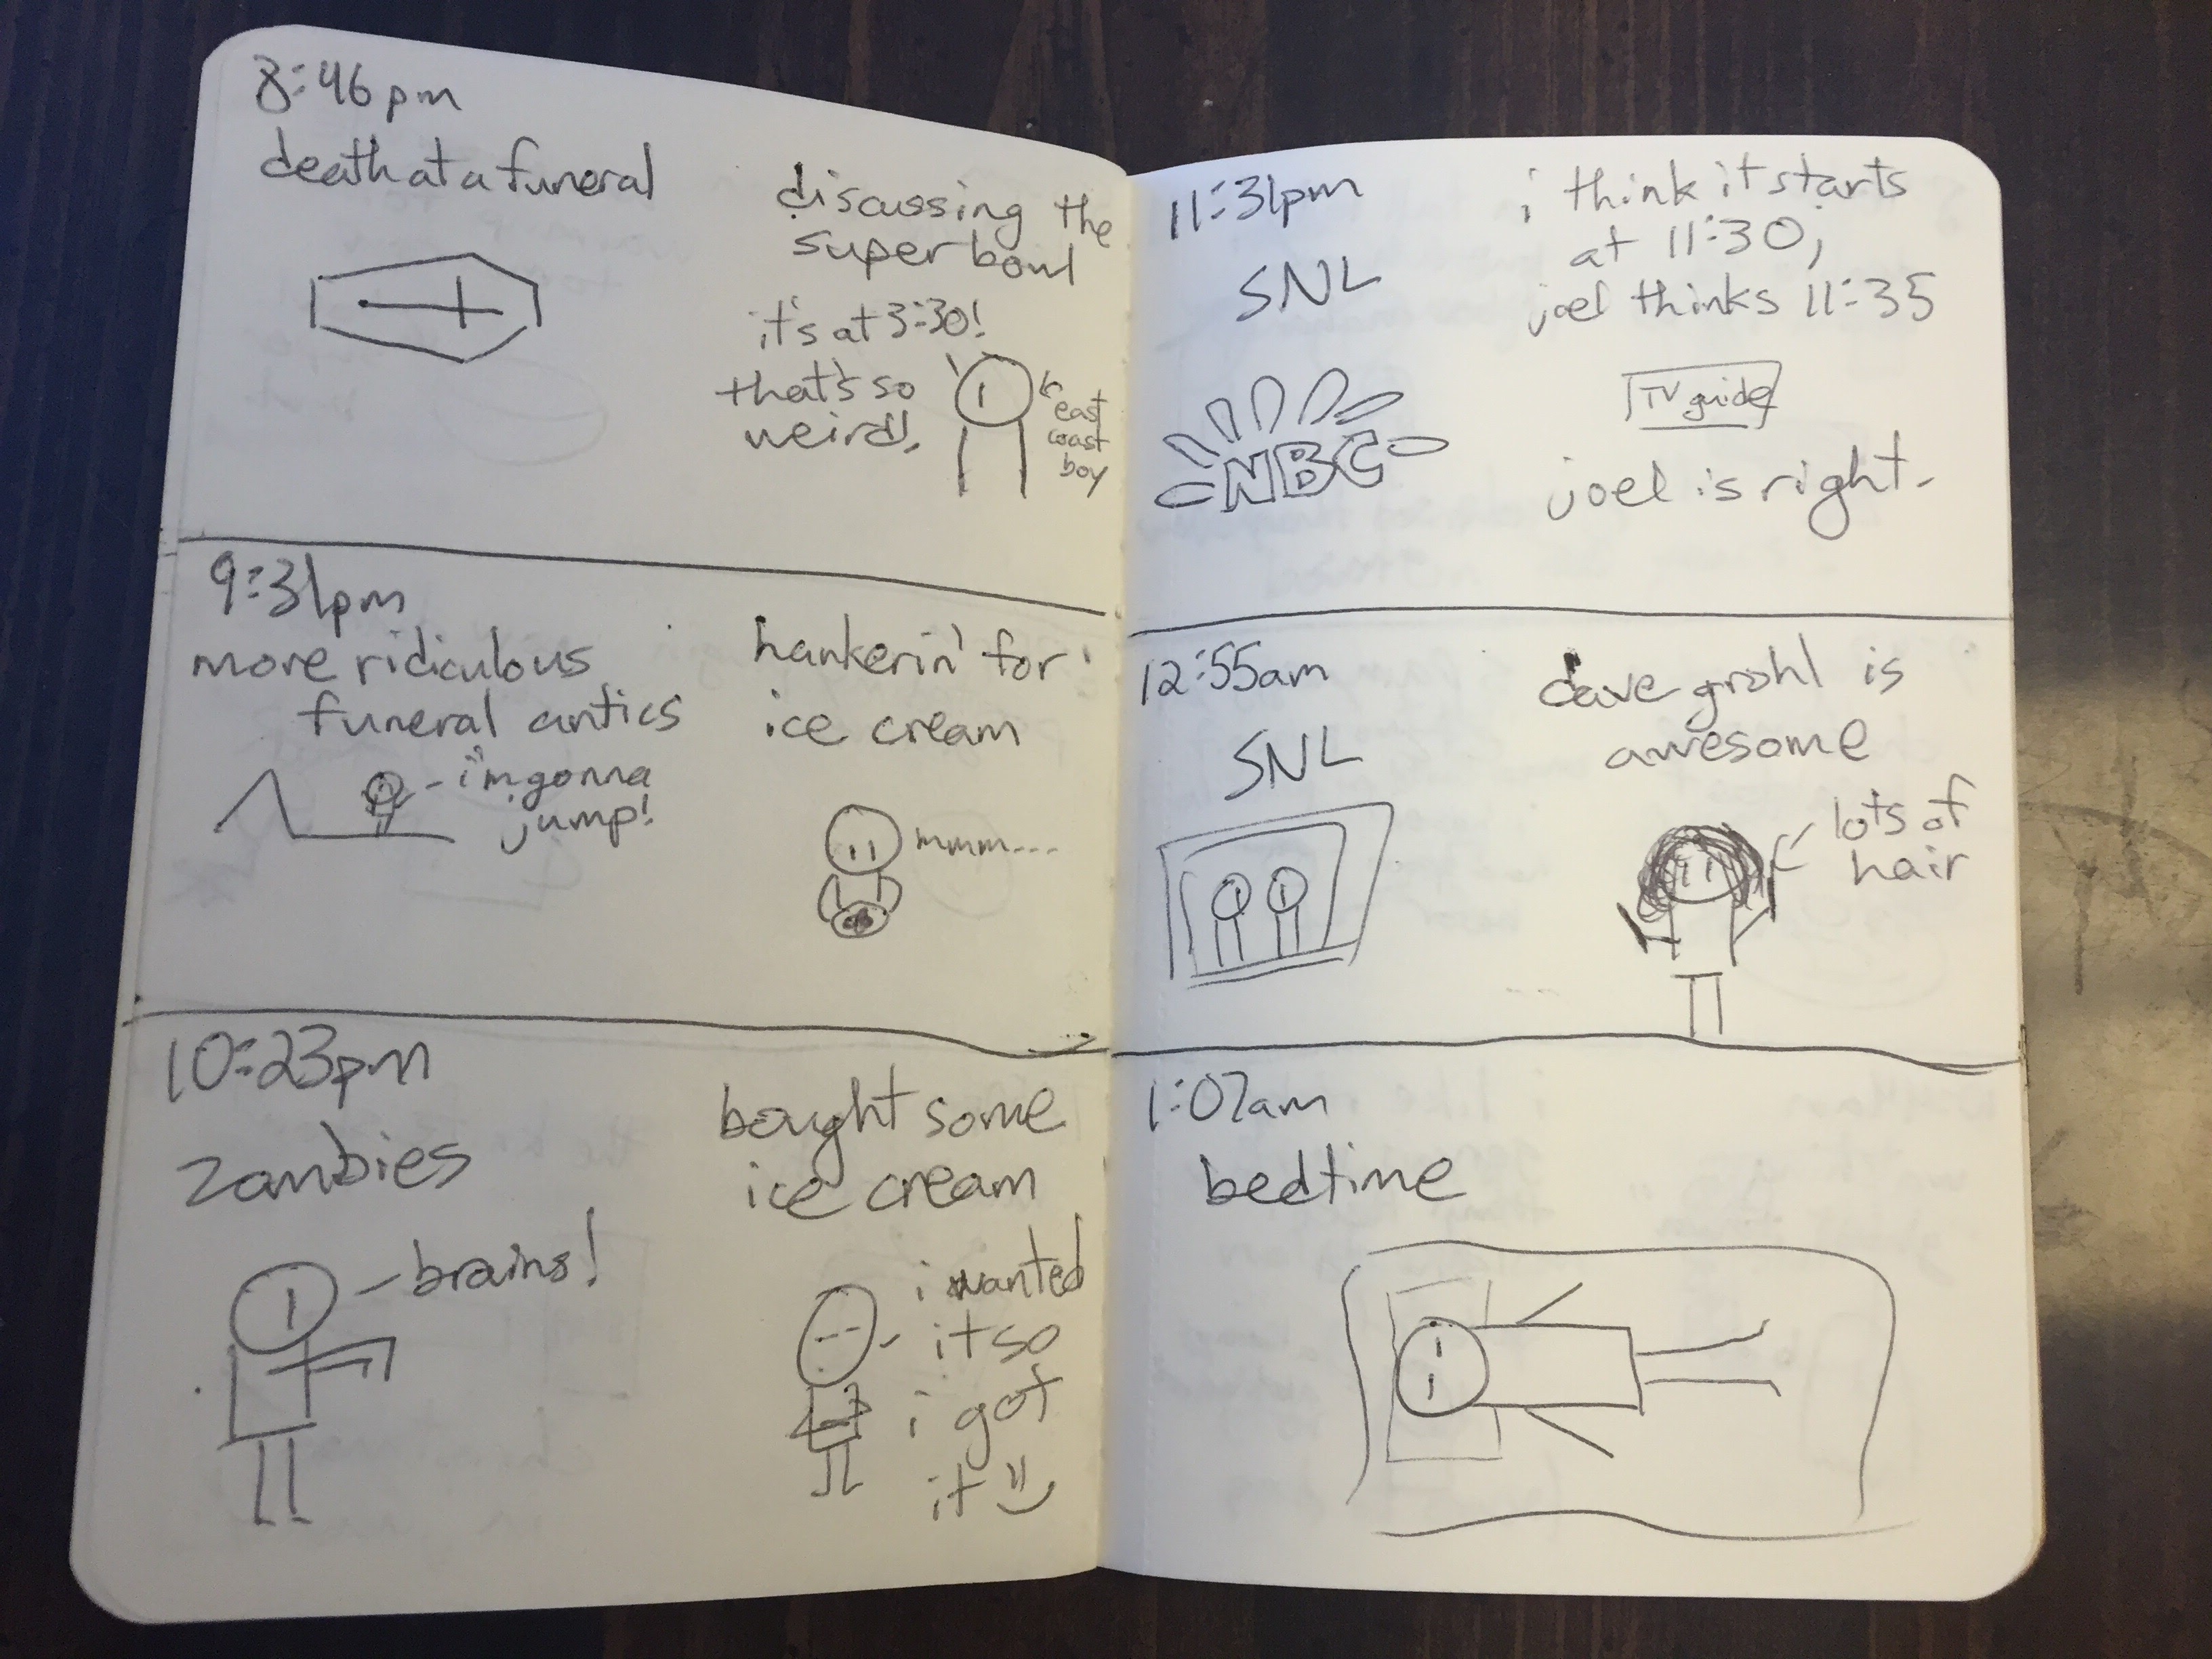 8:46pm
death at a funeral
discussing the
super bowl
it's at 3:30!
that's so
weird!
east
coast
boy
9:31pm
more ridiculous
funeral antics
i'm gonna
jump!
hankerin' for
ice cream
mmm...
10:23pm
zombies
brains!
bought some
ice cream
i wanted
it so
i got
it
11:31pm
SNL
NBC
i think it starts
at 11:30,
joel thinks 11:35
TV guide
joel is right.
12:55am
SNL
dave grohl is
awesome
lots of
hair
1:07am
bedtime